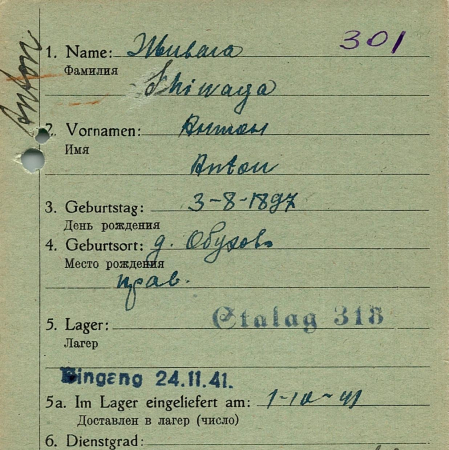 Anton
301
1. Name: Живага
Фамилия
Shiwaga
2. Vornamen: Антон
Имя
Anton
3. Geburtstag: 3-8-1897
День рождения
4. Geburtsort: д. Обухово
Место рождения
прав.
5. Lager: Stalag 318
Лагер
Eingang 24.11.41.
5a. Im Lager eingeliefert am: 1-10-41
Доставлен в лагер (число)
6. Dienstgrad: